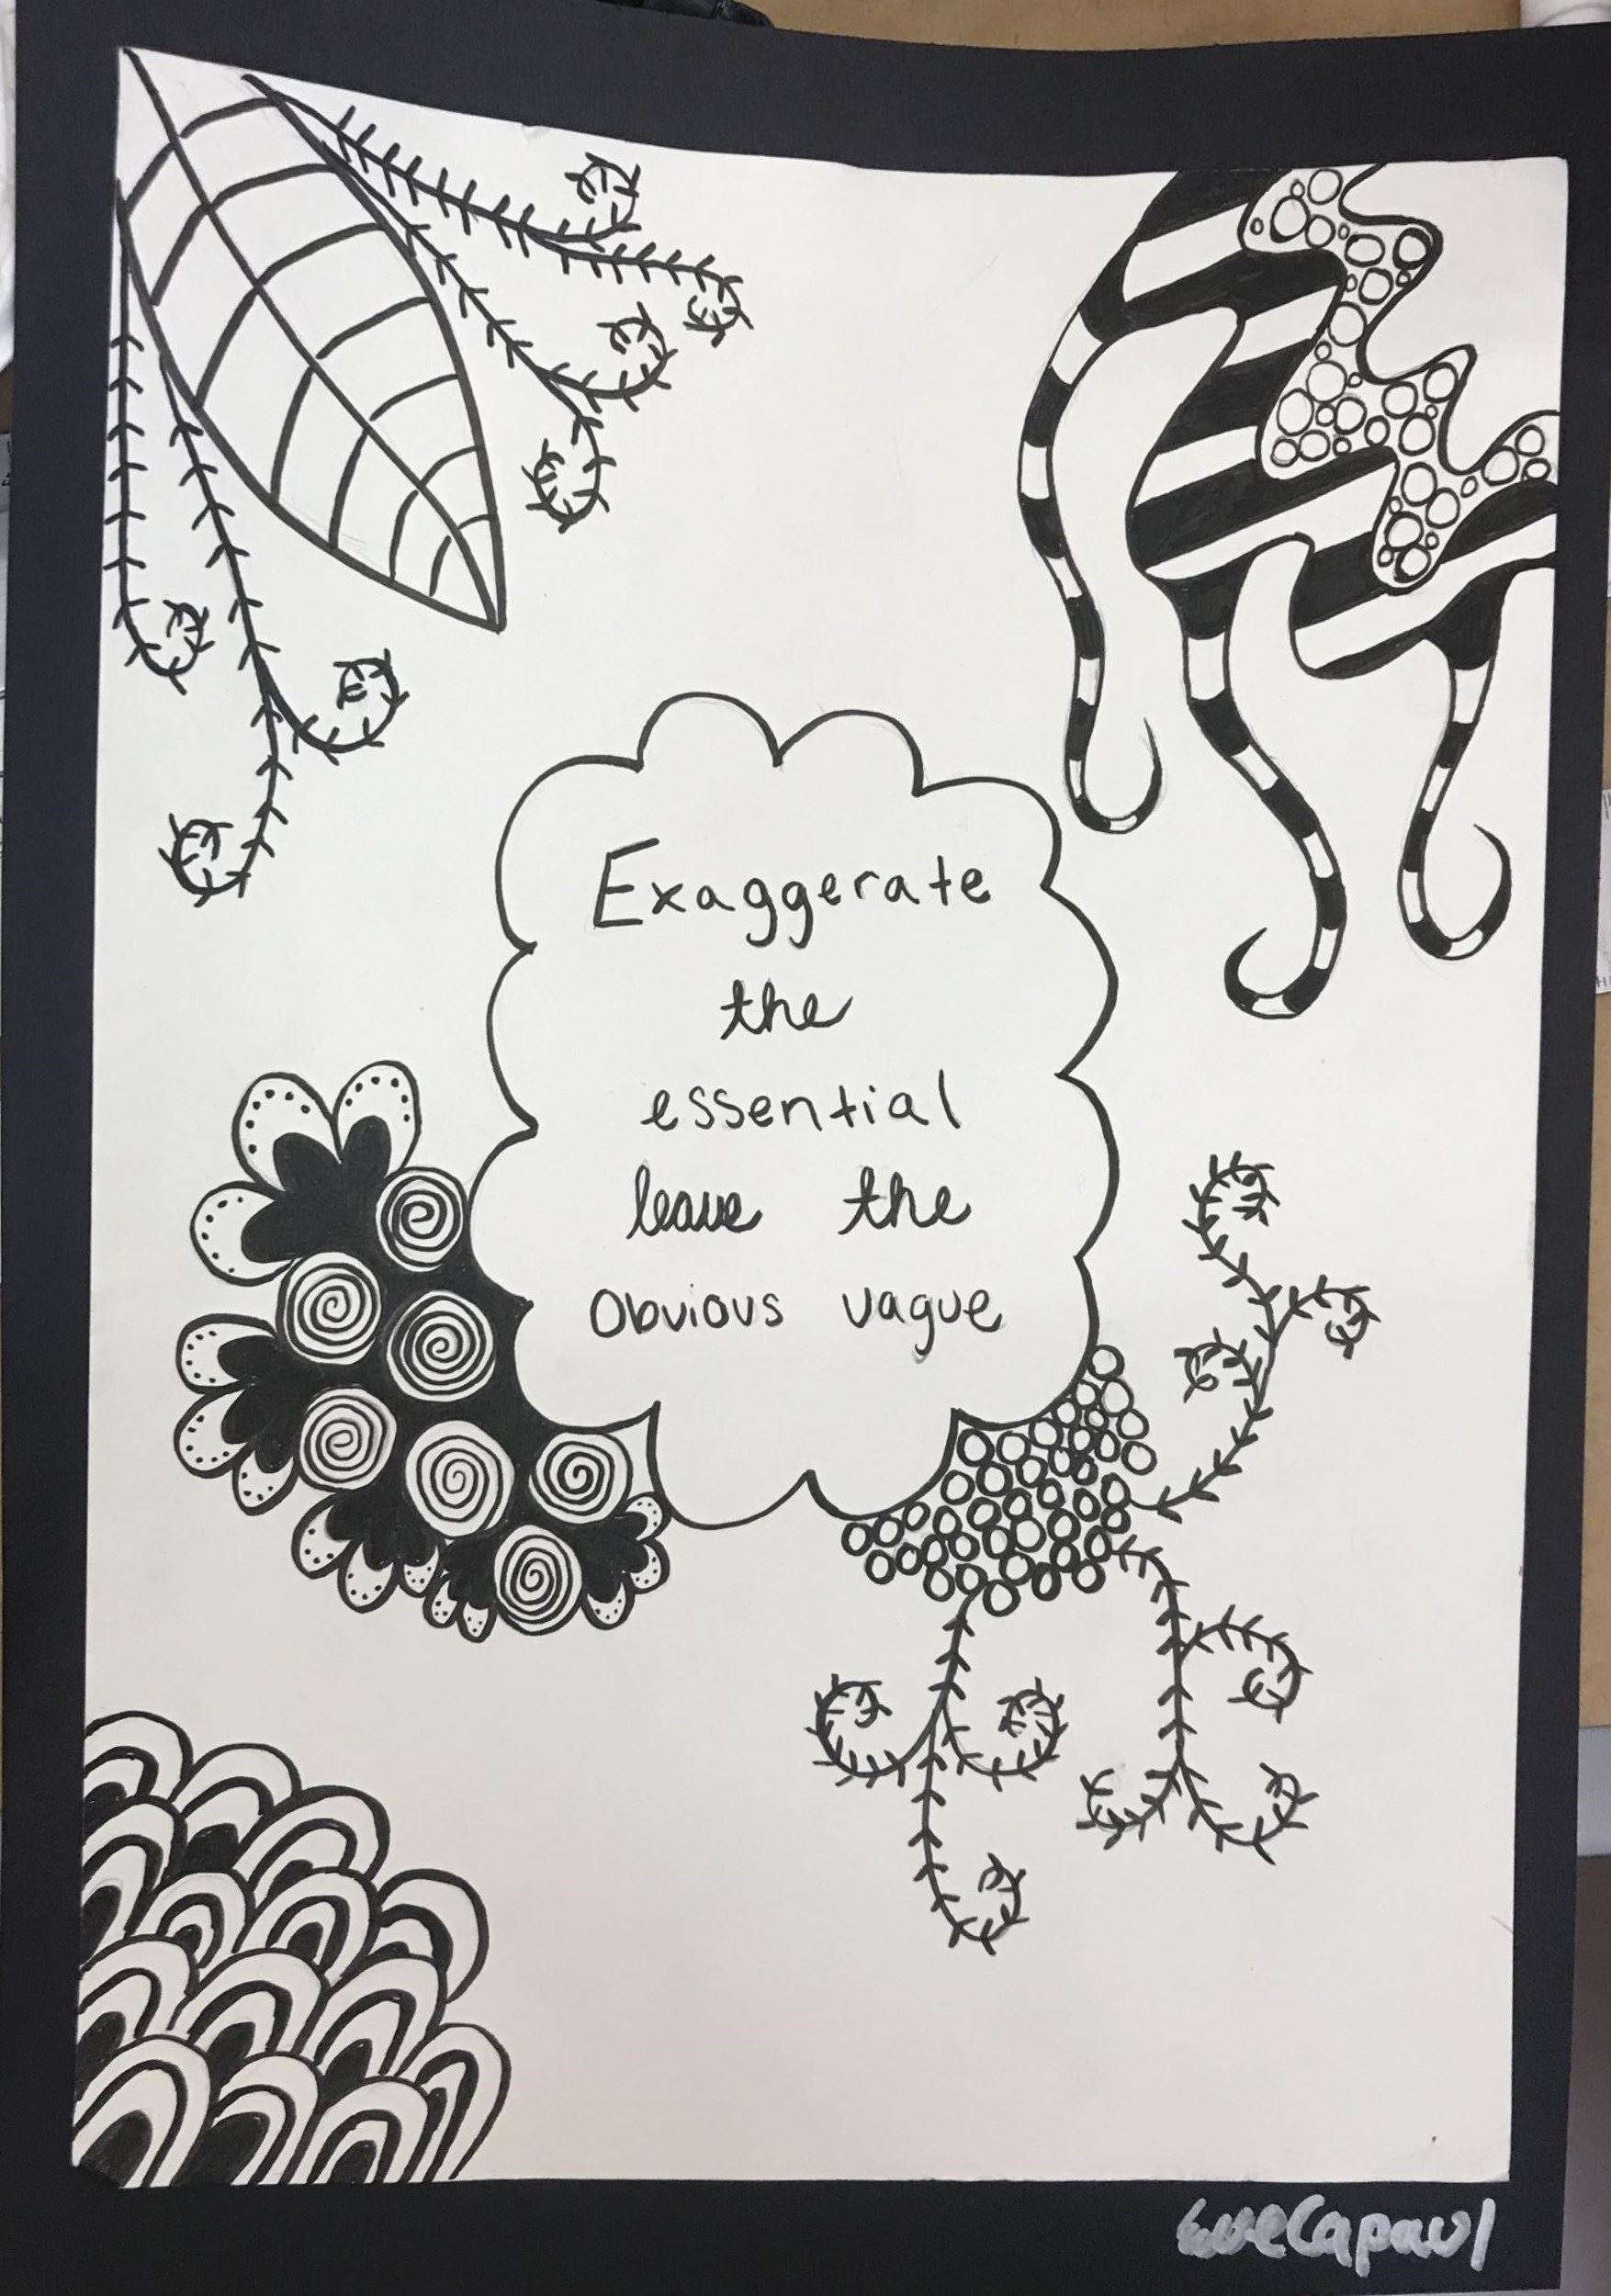 Exaggerate
the
essential
leave the
Obvious vague
EveCapaul